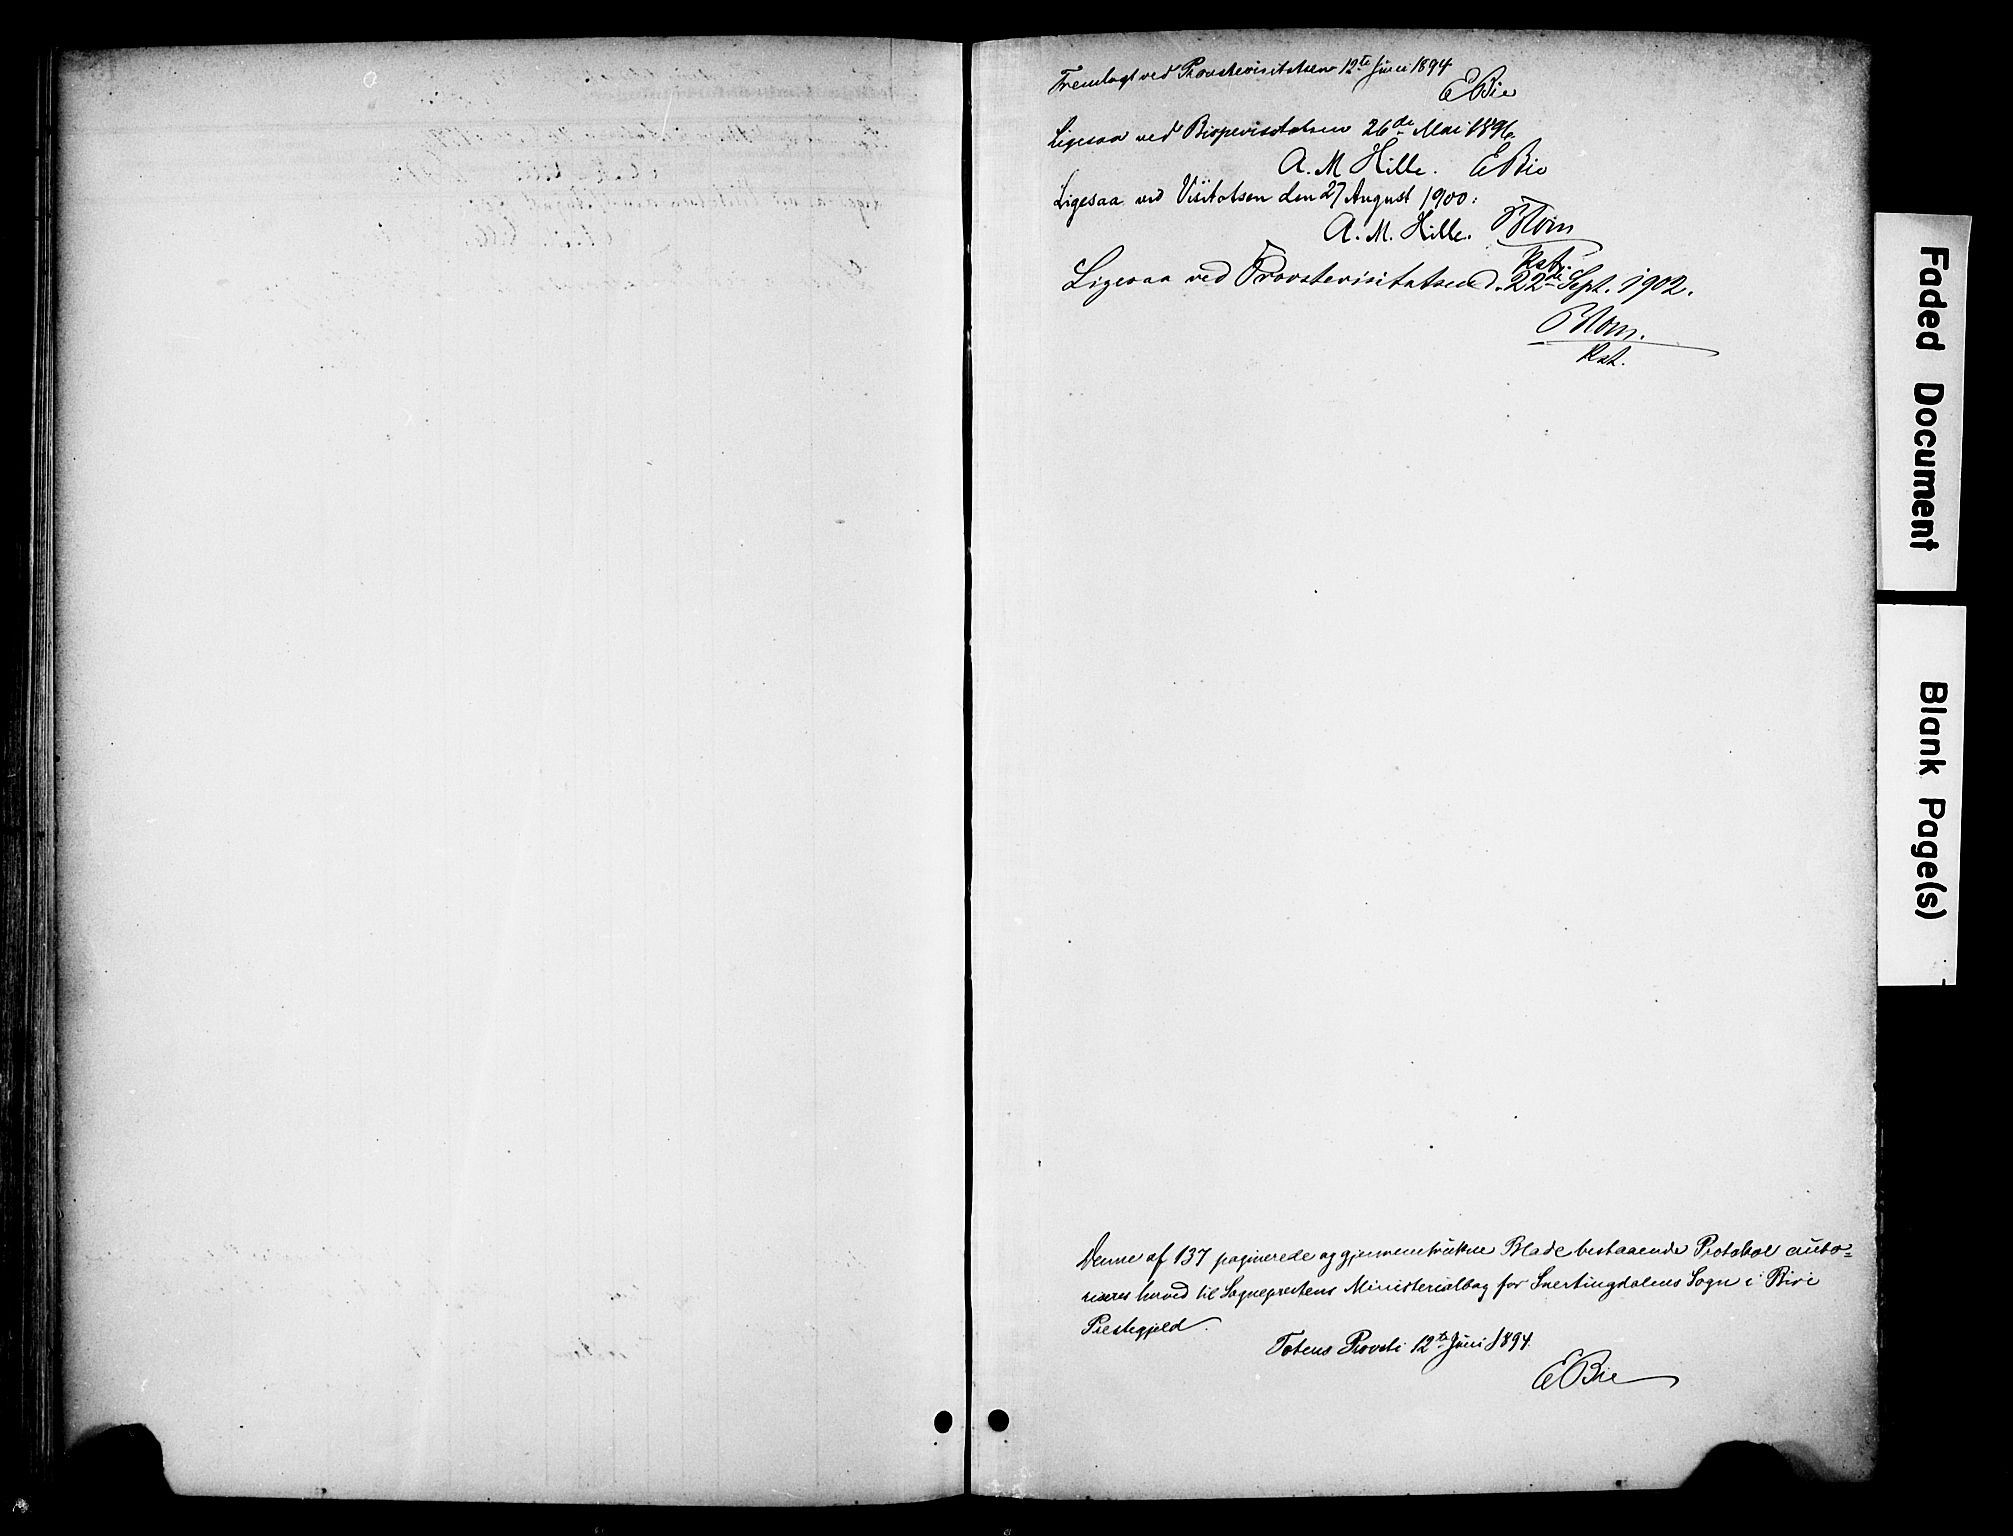 Fremlagt ved Provstevisitatsen 12te Juni 1894
EBie
Ligesaa ved Bispevisitatsen 26de Mai 1896
A. M Hille. EBie
Ligesaa ved Visitatsen den 27 August 1900.
A. M. Hille.
Kst.
Ligesaa ved Provstevisitatsen d. 22de Sept. 1902.
Kst.
Denne af 137 paginerede og gjennemtrukne Blade bestaaende Protokol auto=
riseres herved til Sogneprestens Ministerialbog for Snertingdalens Sogn i Biri
Prestegjeld.
Totens Provsti 12te Juni 1894.
EBie
Faded Document
Blank Page(s)